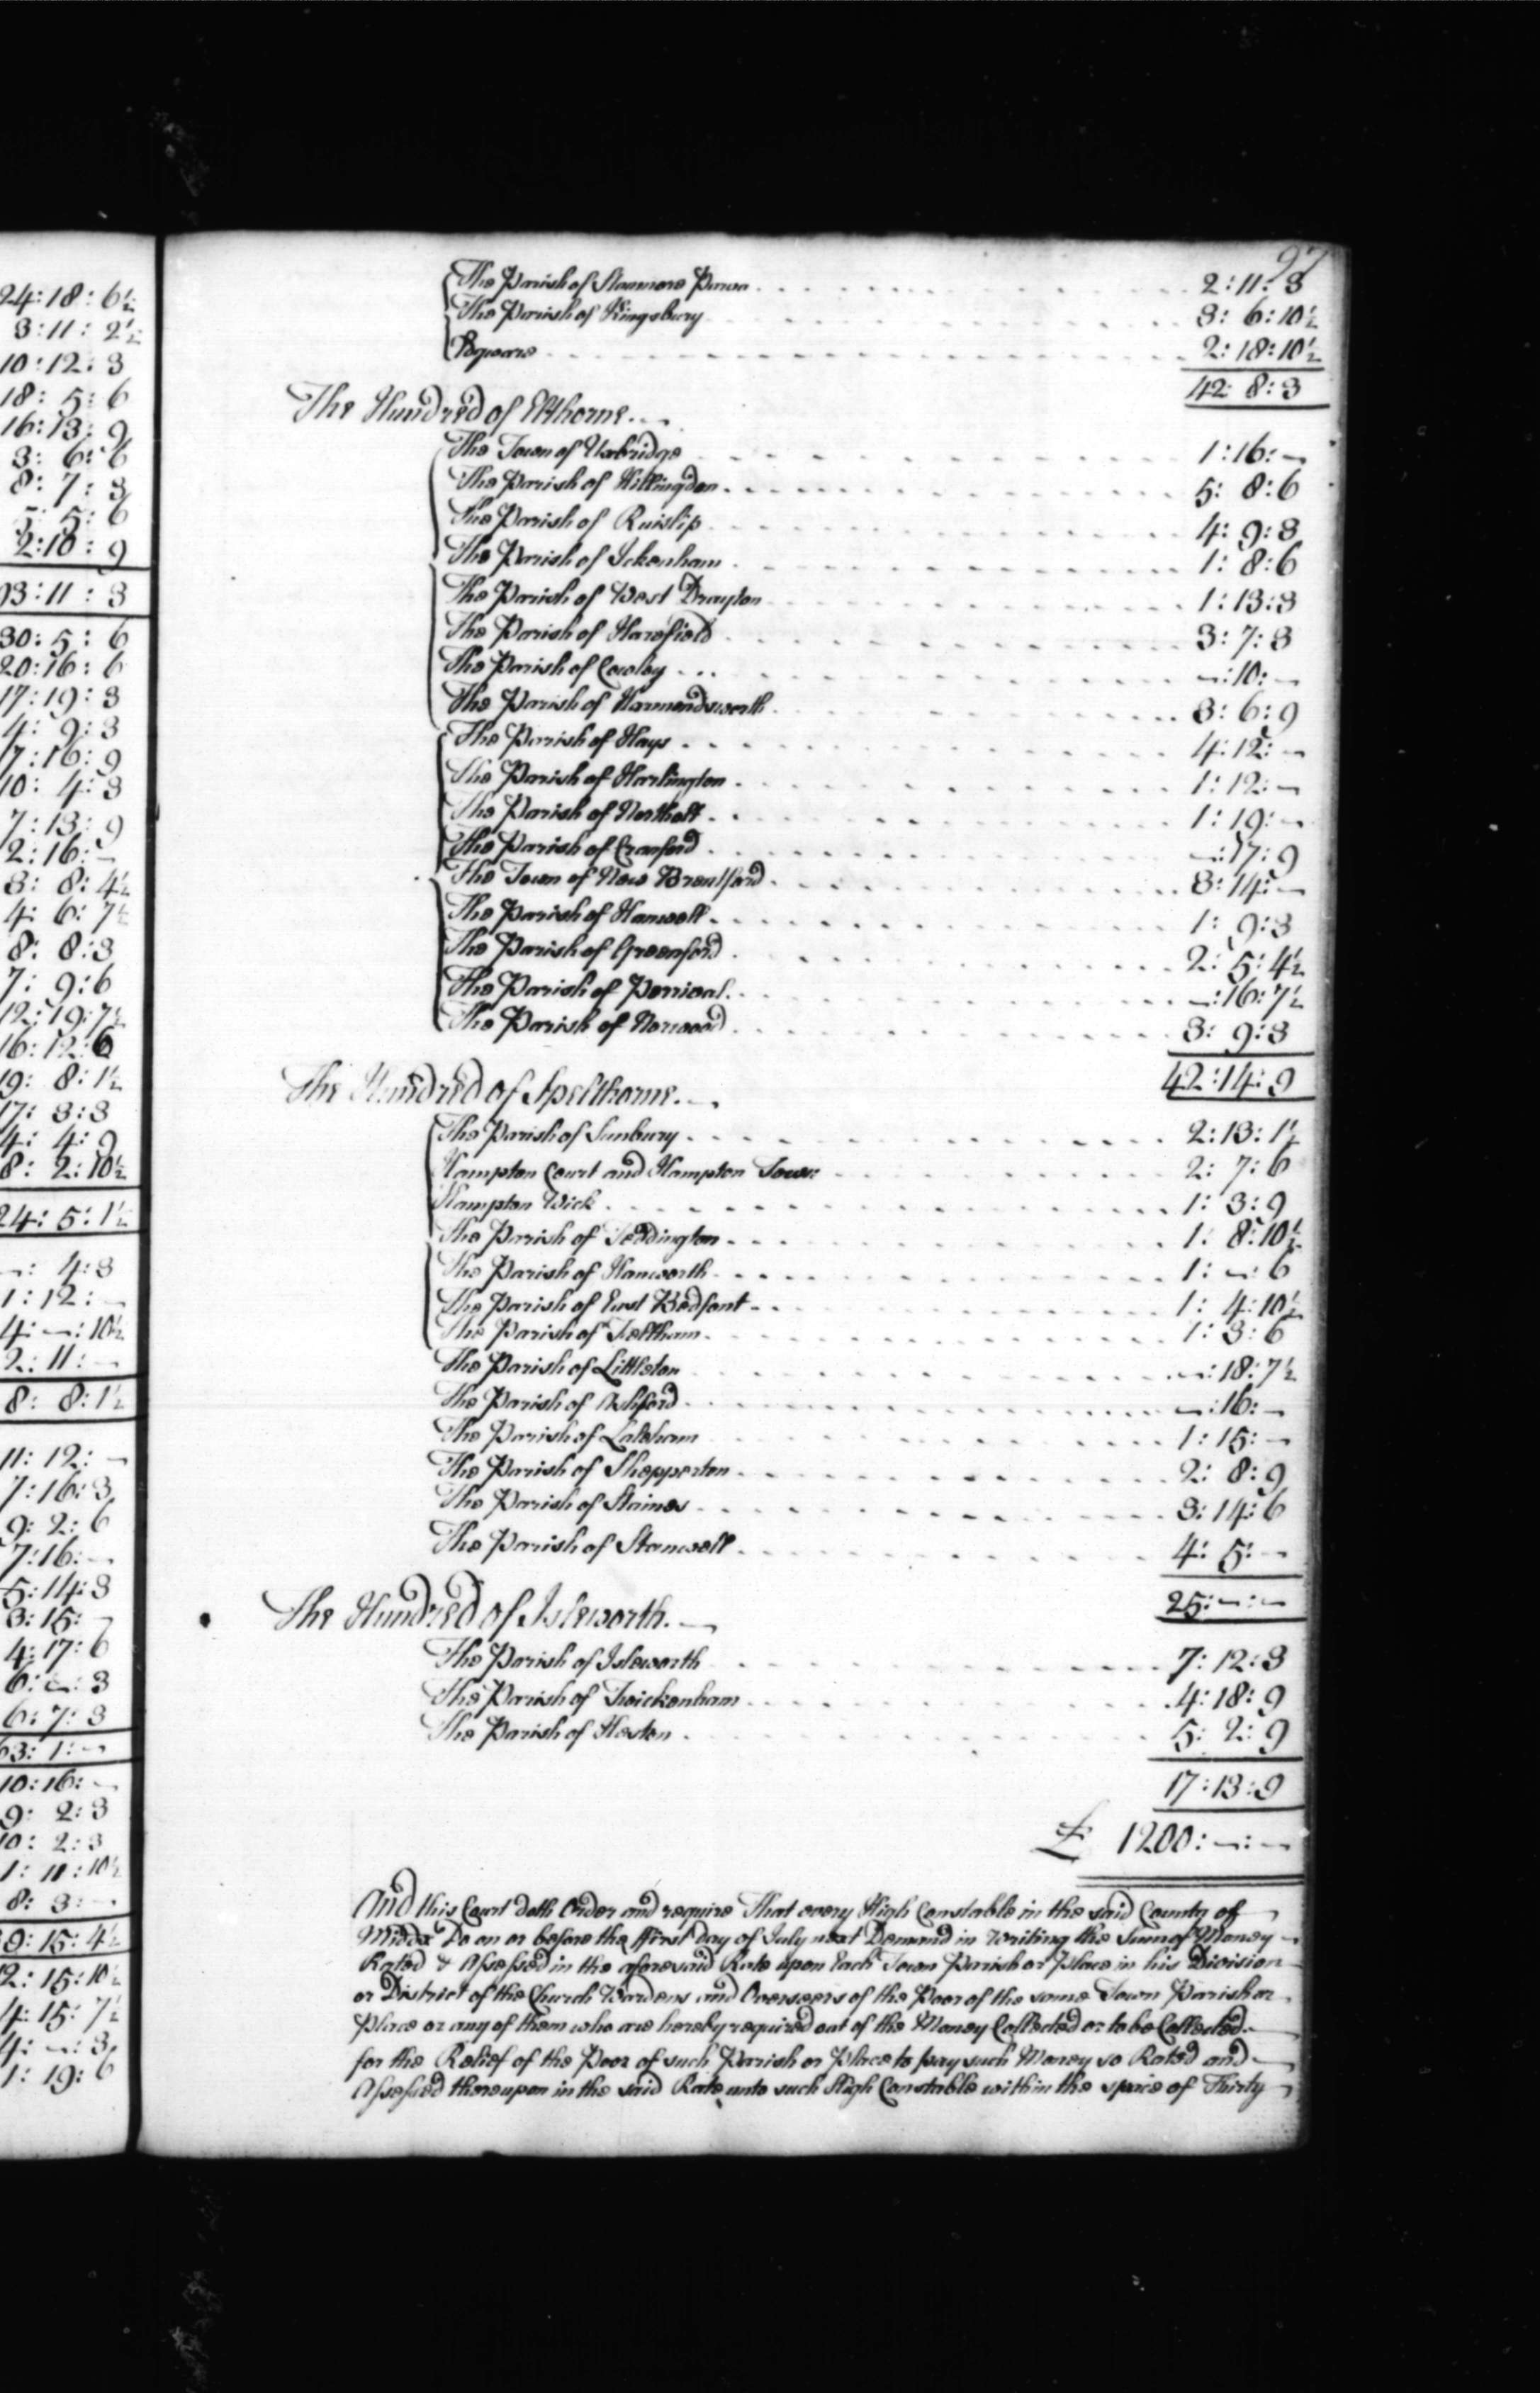 24:18:6½
3:11:2½
10:12:3
18:5:6
16:13:9
3:6:6
8:7:3
5:5:6
2:10:9
93:11:3
30:5:6
20:16:6
17:19:3
4:9:3
7:16:9
10:4:3
7:13:9
2:16:—
3:8:4½
4:6:7½
8:8:3
7:9:6
12:19:7½
16:12:6
19:8:1½
17:3:3
4:4:9
8:2:10½
24:5:1½
—:4:3
1:12:—
4:—:10½
2:11:—
8:8:1½
11:12:—
7:16:3
9:2:6
7:16:—
5:14:3
3:15:—
4:17:6
6:—:3
6:7:3
63:1:—
10:16:—
9:2:3
10:2:3
1:11:10½
8:3:—
9:15:4½
2:15:10½
4:15:7½
4:—:3
1:19:6
97
The Parish of Stanmore Parva 2:11:3
The Parish of Kingsbury 3:6:10½
Edgware 2:18:10½
42:8:3
The Hundred of Elthorne.
The Town of Uxbridge 1:16:—
The Parish of Hillingdon 5:8:6
The Parish of Ruislip 4:9:3
The Parish of Ickenham 1:8:6
The Parish of West Drayton 1:13:3
The Parish of Harefield 3:7:3
The Parish of Cowley —:10:—
The Parish of Harmondsworth 3:6:9
The Parish of Hays 4:12:—
The Parish of Harlington 1:12:—
The Parish of Northolt 1:19:—
The Parish of Cranford —:17:9
The Town of New Brentford 3:14:—
The Parish of Hanwell 1:9:3
The Parish of Greenford 2:5:4½
The Parish of Perrival —:16:7½
The Parish of Norwood 3:9:3
42:14:9
The Hundred of Spelthorne.
The Parish of Sunbury 2:13:1½
Hampton Court and Hampton Town 2:7:6
Hampton Wick 1:3:9
The Parish of Teddington 1:8:10½
The Parish of Hanworth 1:—:6
The Parish of East Bedfont 1:4:10½
The Parish of Feltham 1:3:6
The Parish of Littleton —:18:7½
The Parish of Ashford —:16:—
The Parish of Laleham 1:15:—
The Parish of Shepperton 2:8:9
The Parish of Staines 3:14:6
The Parish of Stanwell 4:5:—
25:—:—
The Hundred of Isleworth.
The Parish of Isleworth 7:12:3
The Parish of Twickenham 4:18:9
The Parish of Heston 5:2:9
17:13:9
£ 1200:—:—
And this Court doth Order and require That every High Constable in the said County of
Middx Do on or before the ffirst day of July next Demand in writing the Sum of Money
Rated & Assessed in the aforesaid Rate upon Each Town Parish or Place in his Division
or District of the Church Wardens and Overseers of the Poor of the same Town Parish or
Place or any of them who are hereby required out of the Money Collected or to be Collected
for the Relief of the Poor of such Parish or Place to pay such Money so Rated and
Assessed thereupon in the said Rate unto such High Constable within the space of Thirty